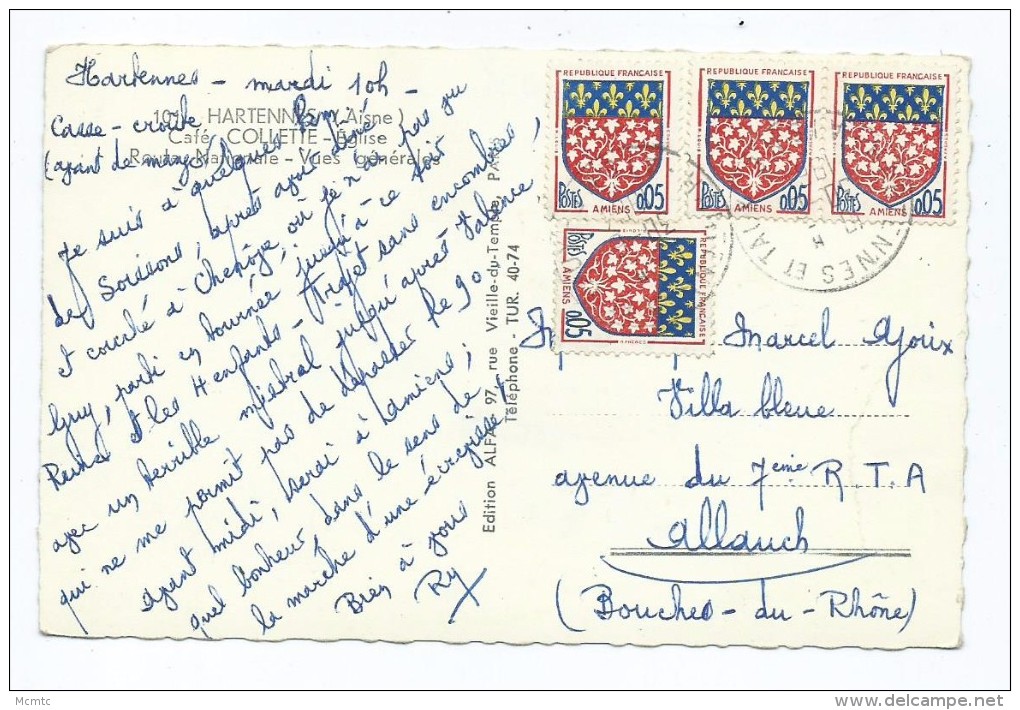 Hartennes - mardi 10h -
Casse-croute
101 - HARTENNES (Aisne)
Café COLLETTE - Église
Route Nationale - Vues générales
Je suis à quelques kms
de Soissons, après avoir dîné
et couché à
Guy, parti en tournée, où je n'ai pas vu
et les 4 enfants - Trajet sans encombre,
avec un terrible mistral jusqu'après Valence
qui ne me permit pas de dépasser le 90
avant midi, serai à Amiens ;
quel bonheur, dans le sens de
la marche d'une écrevisse !
Bien à vous
Ry
Edition ALFA - 97, rue Vieille-du-Temple, PARIS
Téléphone - TUR. 40-74
REPUBLIQUE FRANÇAISE
POSTES 0,05
AMIENS
REPUBLIQUE FRANÇAISE
POSTES 0,05
AMIENS
REPUBLIQUE FRANÇAISE
POSTES 0,05
AMIENS
REPUBLIQUE FRANÇAISE
POSTES 0,05
AMIENS
ENNES ET TA
Marcel
Villa bleue
avenue du 7eme R.T.A
Allauch
(Bouches-du-Rhône)
Mcmtc
delcampe.net